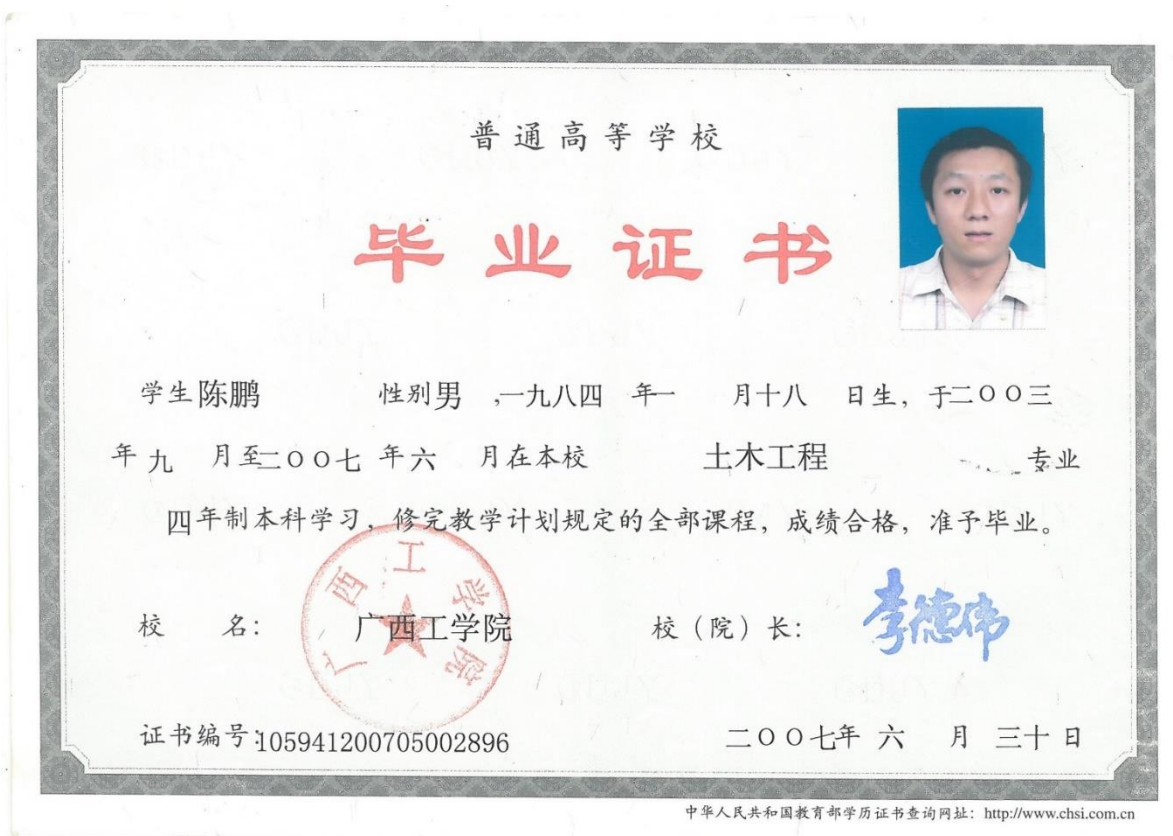 普通高等学校
毕业证书
学生 陈鹏 性别 男 ,一九八四 年 一 月 十八 日生，于二〇〇三
年 九 月至二〇〇七 年 六 月在本校 土木工程 专业
四年制本科学习，修完教学计划规定的全部课程，成绩合格，准予毕业。
广西工学院
校 名： 广西工学院 校（院）长： 李德伟
证书编号:105941200705002896 二〇〇七年 六 月 三十 日
中华人民共和国教育部学历证书查询网址：http://www.chsi.com.cn